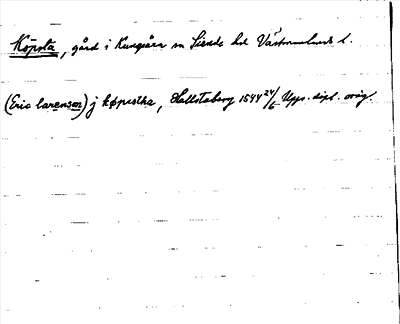 Köpsta, gård i Kungsåra sn Siende hd Västmanlands l.
(Eric larenson) j køpistha, Hallstaberg 1544 24/6 Upps. dipl. orig.